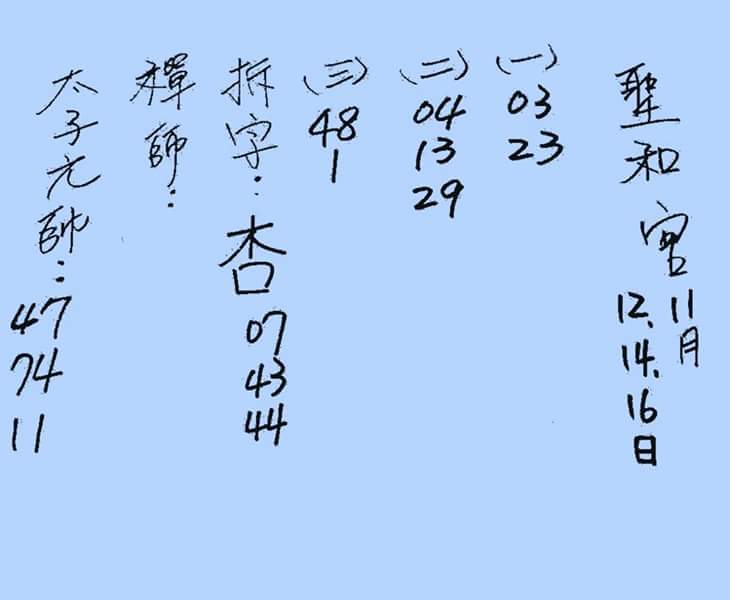 聖和宮 11月
12、14、16日
(一) 03 23
(二) 04 13 29
(三) 48 1
拆字：杏 07 43 44
禪師：
太子元帥： 47 74 11